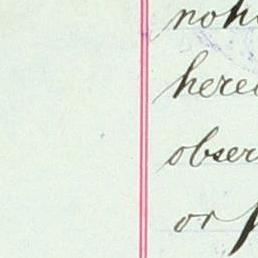 noh
here
obser
or